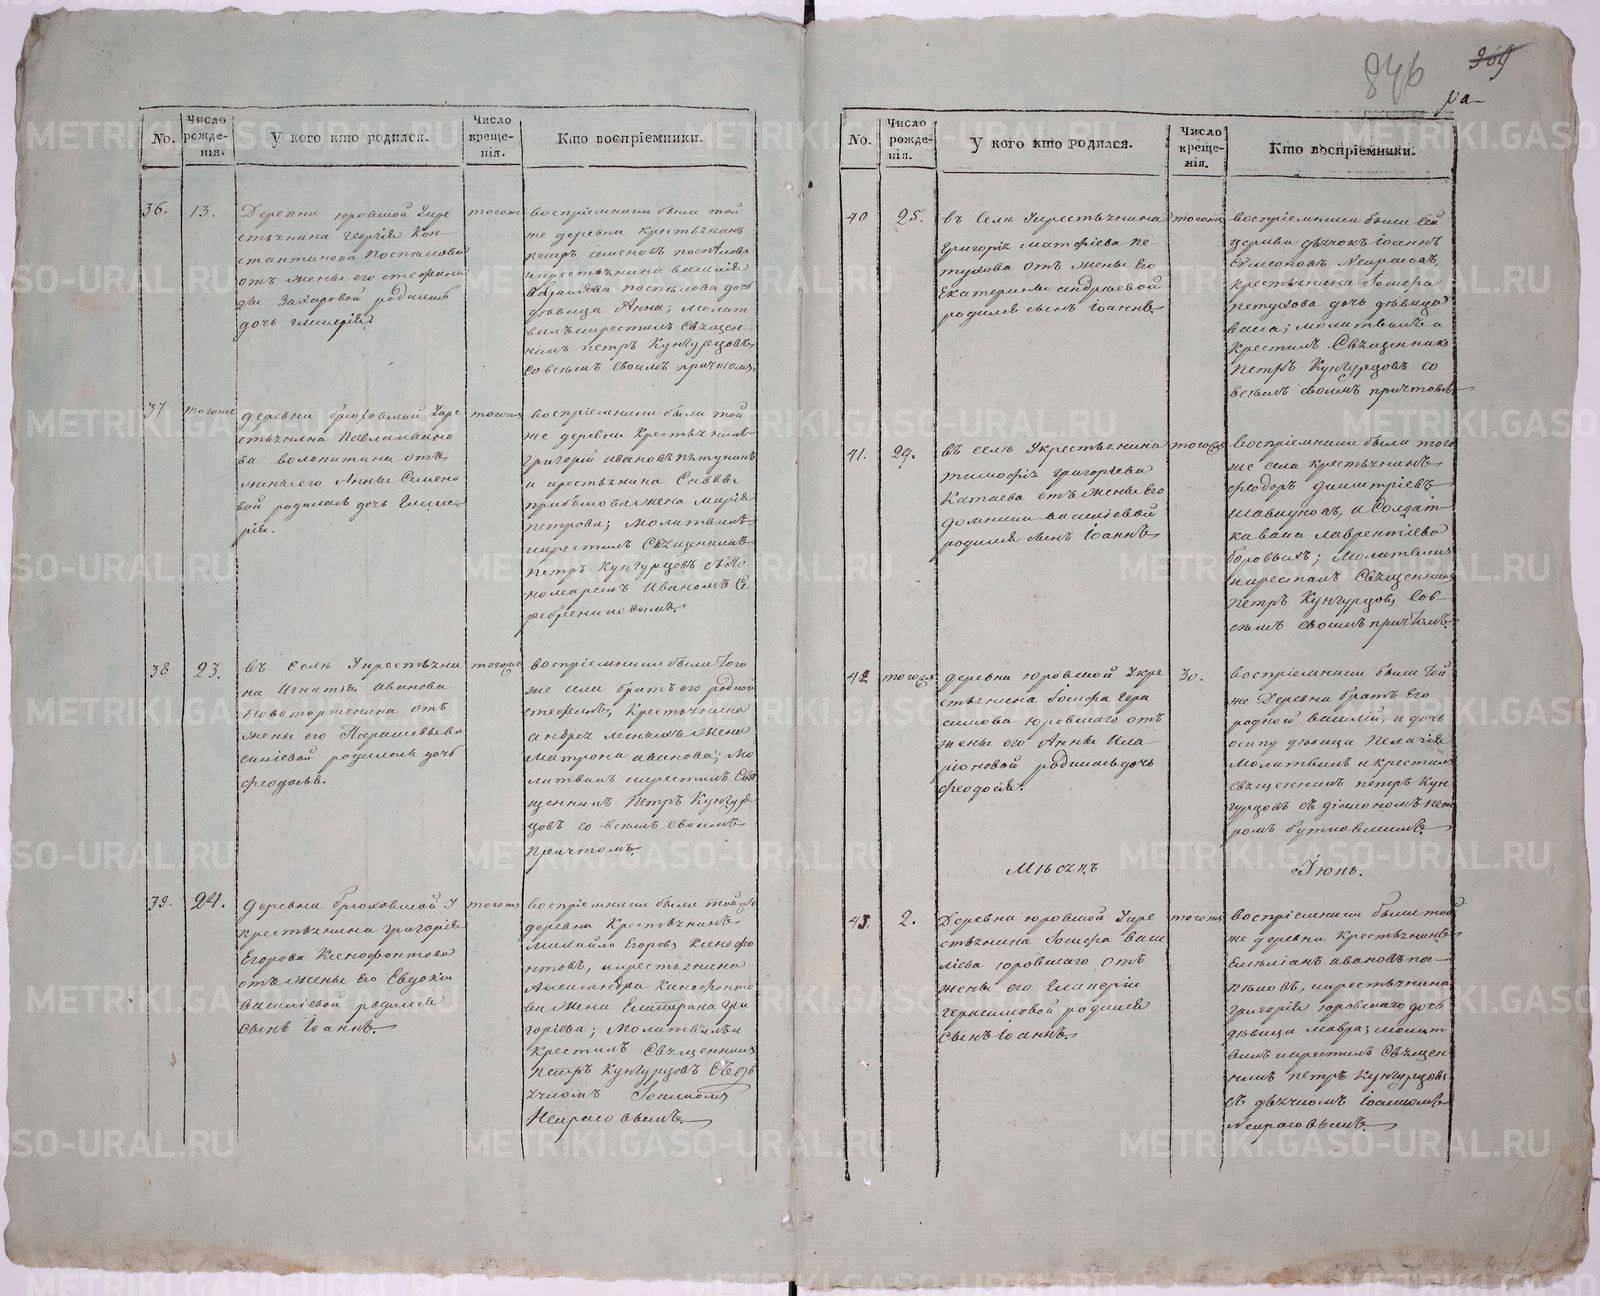 846
369
ра
No.
Число рожденія.
У кого кто родился.
Число крещенія.
Кто воспріемники.
36.
13.
Деревни Юровской Укре
стьянина Георгія Кон
стантинова Поспелова
отъ жены его Стефани
ды Захаровой родилась
дочь Гликерія.
тогоже
воспріемники были той
же деревни крестьянинъ
Петръ Семеновъ Поспеловъ
икрестьянина Василія
Поспелова дочь
девица Анна; молит
вилъ икрестилъ Священ
никъ Петръ Кунгурцовъ
со всемъ своимъ причтомъ.
37
тогоже
деревни Брюховской Укре
стьянина Павла Ивано
ва Волокитина отъ
жены его Анны Семено
вой родилась дочь Глике
рія.
тогоже
воспріемники были той
же деревни Крестьянинъ
Григорій Ивановъ Петунинъ
и крестьянина Саввы
жена Марія
Петрова; молитвилъ
икрестилъ Священникъ
Петръ Кунгурцовъ съ По
номаремъ Иваномъ Се
ребрениковымъ.
38
23.
въ селе Укрестьяни
на Игнатія Иванова
Новоторженина отъ
жены его Парасковьи Ва
силіевой родилась дочь
Феодосья.
тогоже
воспріемники были того
же села братъ его родной
Стефанъ, Крестьянина
Андрея жена
Матрона Иванова; мо
литвилъ икрестилъ Свя
щенникъ Петръ Кунгур
цовъ со всемъ своимъ
Причтомъ.
39.
24.
деревни Брюховской У
крестьянина Григорія
Егорова Ксенофонтова
отъ жены его Евдокіи
Василіевой родился
сынъ Іоаннъ.
тогоже
воспріемники были тойже
деревни Крестьянинъ
Михайло Егоровъ Ксенофо
нтовъ, икрестьянина
Александра Ксенофонто
ва жена Екатерина Гри
горіева; молитвилъ и
крестилъ Священникъ
Петръ Кунгурцовъ съ дь
ячкомъ
Некрасовымъ.
No.
Число рожденія.
У кого кто родился.
Число крещенія.
Кто воспріемники.
40
25.
въ селе Укрестьянина
Григорія Матфіева Пе
тухова отъ жены его
Екатерины Андреевой
родился сынъ Іоаннъ.
тогоже
воспріемники были сей
церкви дьячокъ Іоаннъ
Симеоновъ Некрасовъ,
крестьянина Іосифа
Петухова дочь девица
Васса; молитвилъ и
крестилъ Священникъ
Петръ Кунгурцовъ со
всемъ своимъ причтомъ.
41.
29.
въ селе Укрестьянина
Тимофія Григоріева
Катаева отъ жены его
Домники Василіевой
родился сынъ Іоаннъ.
тогоже
воспріемники были того
же села крестьянинъ
Феодоръ Димитріевъ
Шавкуновъ, и Солдат
ка Васса Лаврентіева
Боровыхъ; молитвилъ
икрестилъ Священникъ
Петръ Кунгурцовъ, совъ
семъ своимъ причтомъ.
42
тогоже
деревни Юровской Укре
стьянина Іосифа Гера
симова Юровскаго отъ
жены его Анны Ила
ріоновой родилась дочь
Феодосія.
30.
воспріемники были той
же деревни братъ его
родной Василій, и дочь
девица Пелагія
молитвилъ и крестилъ
Священникъ Петръ Кун
гурцовъ съ діякономъ Пет
ромъ
Месяцъ
Іюнь.
43.
2.
Деревни Юровской Укре
стьянина Іосифа Васи
ліева Юровскаго отъ
жены его Гликеріи
Герасимовой родился
сынъ Іоаннъ.
тогоже
воспріемники были той
же деревни Крестьянинъ
Емеліанъ Ивановъ По
пковъ, икрестьянина
Григорія Юровскаго дочь
девица Мавра; молит
вилъ икрестилъ Священ
никъ Петръ Кунгурцовъ
съ дьячкомъ
Некрасовымъ.
METRIKI.GASO-URAL.RU